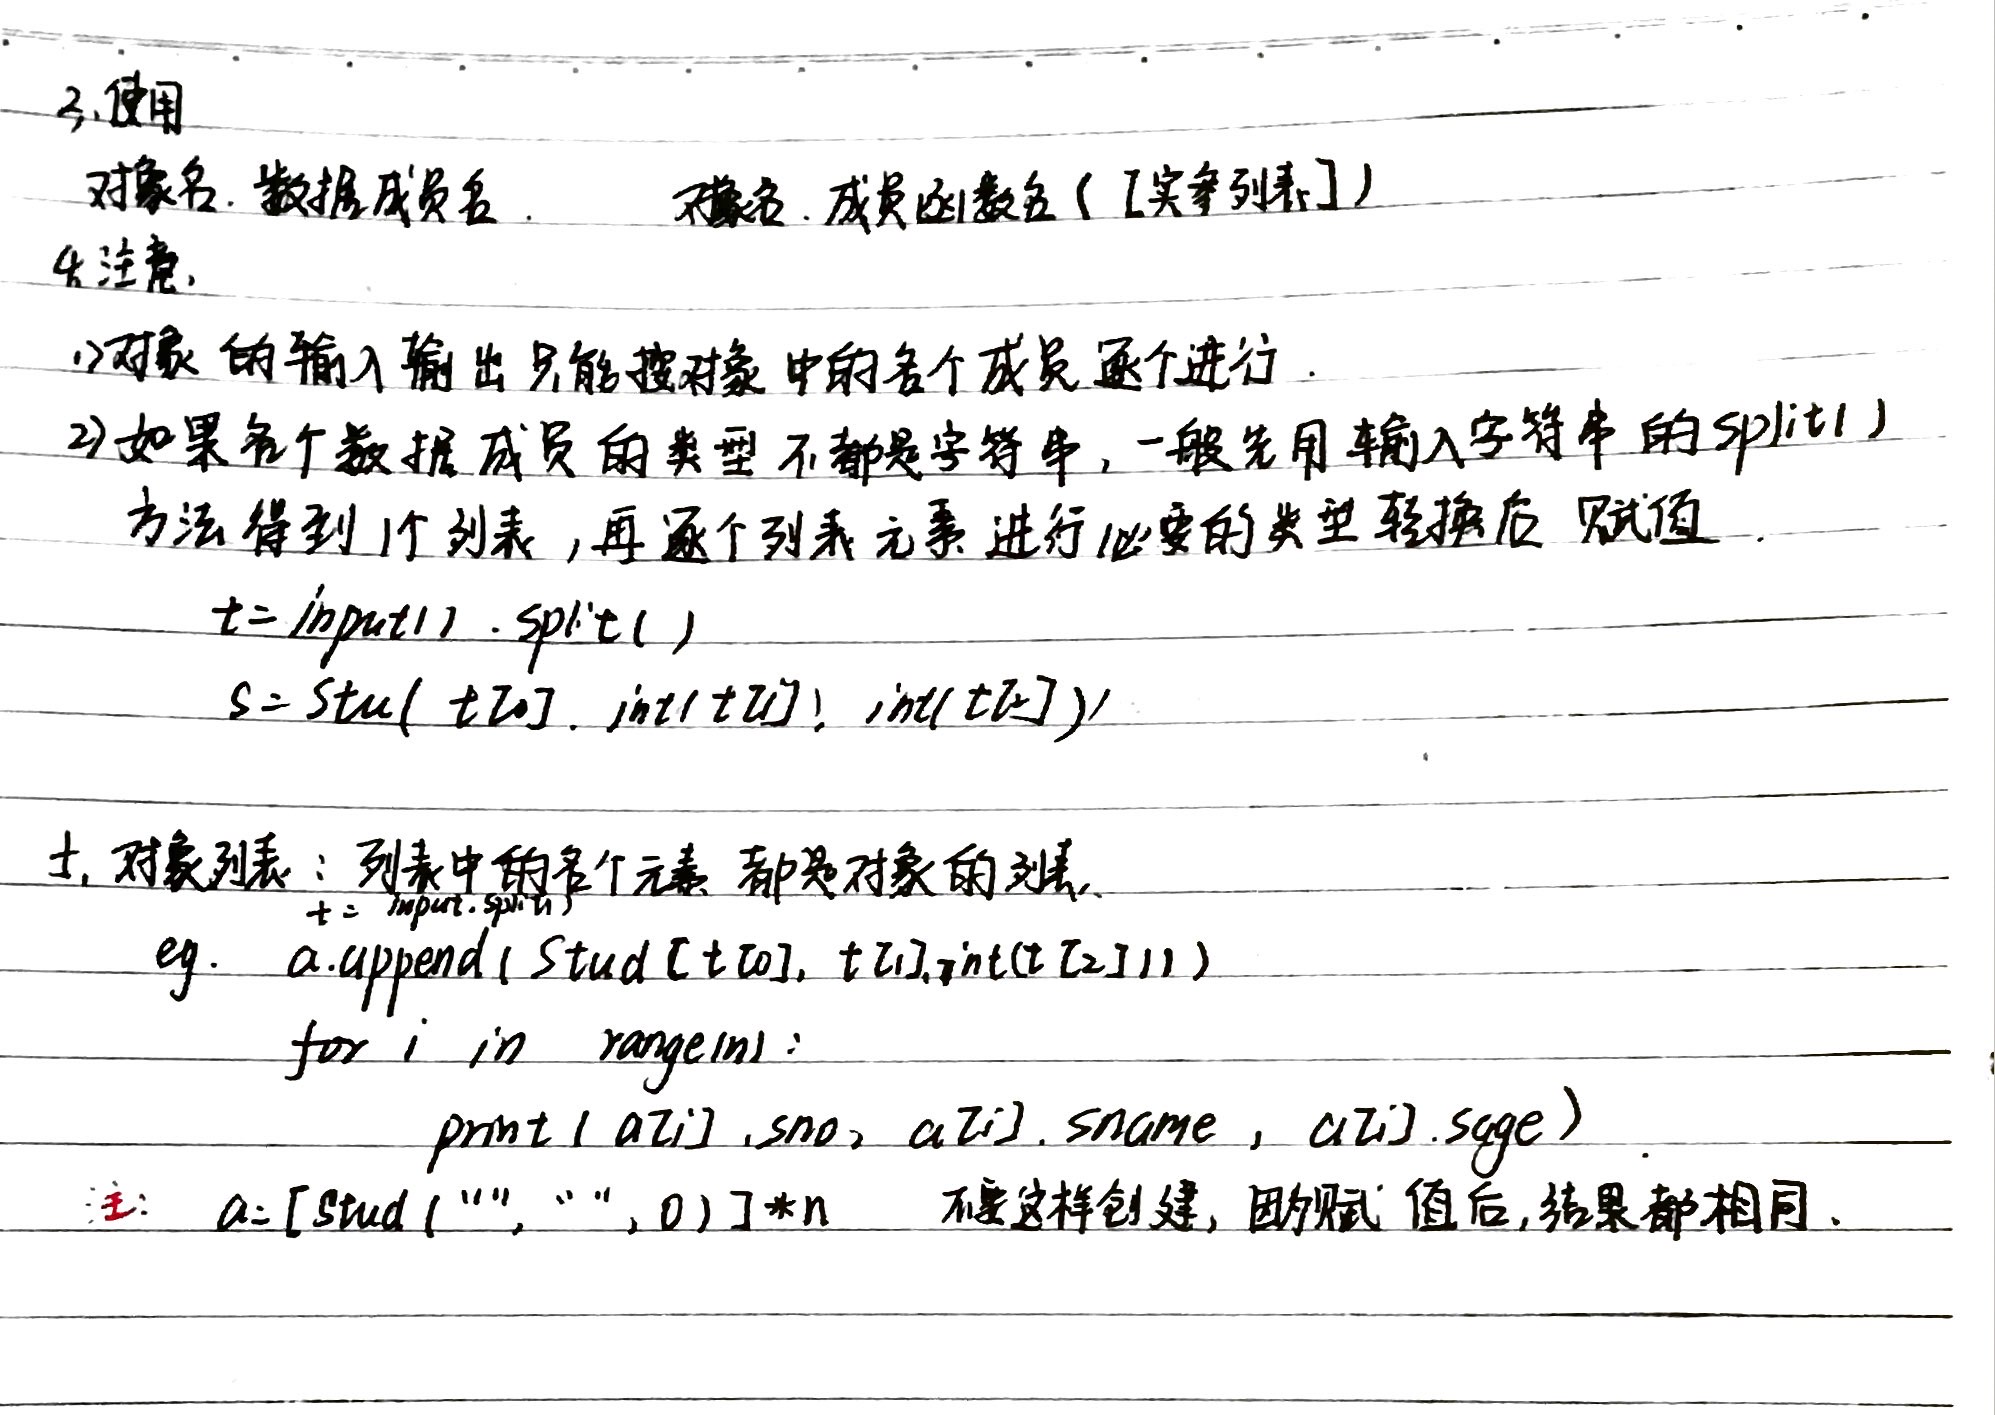 3.使用
对象名.数据成员名. 对象名.成员函数名([实参列表])
4.注意.
1)对象的输入输出只能按对象中的各个成员逐个进行.
2)如果各个数据成员的类型不都是字符串,一般先用输入字符串的split()
方法得到1个列表,再逐个列表元素进行必要的类型转换后赋值.
t=input().split()
s=Stu(t[0].int(t[1]),int(t[2]))
5.对象列表:列表中的各个元素都是对象的列表.
t=input.split()
eg. a.append(Stud[t[0],t[1],int(t[2]))
for i in range(n):
print(a[i].sno,a[i].sname,a[i].sage).
注: a=[Stud("","",0)]*n 不要这样创建,因为赋值后,结果都相同.